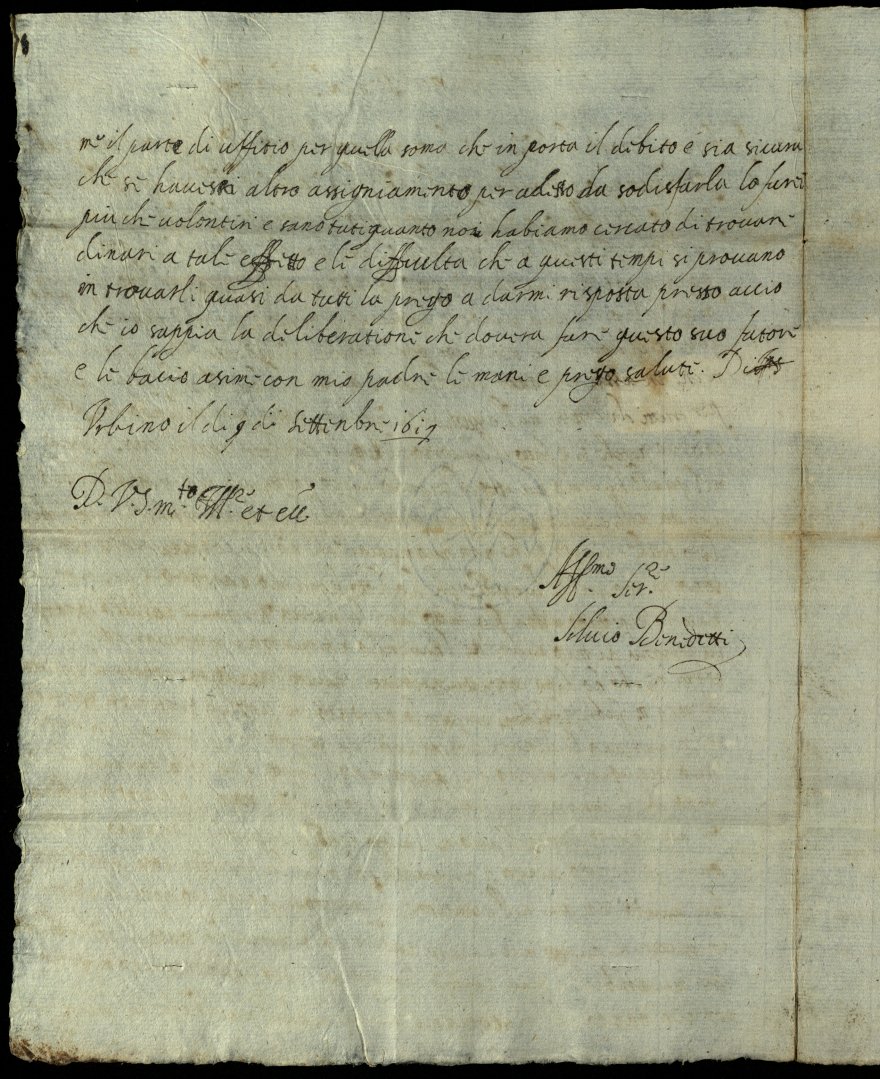 me il parte di uffitio per quella soma che in porta il debito e sia sicura
che se havessi altro assigniamento per adesso da sodisfarla lo farei
piu che volontiri e sano tuti quanto noi habiamo cercato di trovare
dinari a tale effetto e le difficulta che a questi tempi si provano
in trovarli quasi da tuti la prego a darmi risposta presso accio
che io sappia la deliberatione che dovera fare questo suo fatore
e le bacio asime con mio padre le mani e prego salute. Di
Urbino il di 9 di settenbre 1617
D. V. S. m.to Ill.re et ecc.
Aff.mo Ser.re
Silvio Benedetti